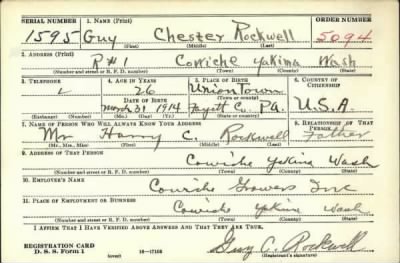 SERIAL NUMBER 1. NAME (Print) ORDER NUMBER
1595 Guy Chester Rockwell 5094
(First) (Middle) (Last)
2. ADDRESS (Print)
R#1 Cowiche Yakima Wash
(Number and street or R. F. D. number) (Town) (County) (State)
3. TELEPHONE 4. AGE IN YEARS 5. PLACE OF BIRTH 6. COUNTRY OF CITIZENSHIP
26 Uniontown
DATE OF BIRTH (Town or county)
March 31 1914 Fayett Co. PA. U.S.A.
(Exchange) (Number) (Mo.) (Day) (Yr.) (State or country)
7. NAME OF PERSON WHO WILL ALWAYS KNOW YOUR ADDRESS 8. RELATIONSHIP OF THAT PERSON
Mr Harry C. Rockwell Father
(Mr., Mrs., Miss) (First) (Middle) (Last)
9. ADDRESS OF THAT PERSON
Cowiche Yakima Wash
(Number and street or R. F. D. number) (Town) (County) (State)
10. EMPLOYER'S NAME
Cowiche Growers Inc
11. PLACE OF EMPLOYMENT OR BUSINESS
Cowiche Yakima Wash
(Number and street or R. F. D. number) (Town) (County) (State)
I AFFIRM THAT I HAVE VERIFIED ABOVE ANSWERS AND THAT THEY ARE TRUE.
REGISTRATION CARD
D. S. S. Form 1 (over) 16—17105 Guy C. Rockwell
(Registrant's signature)